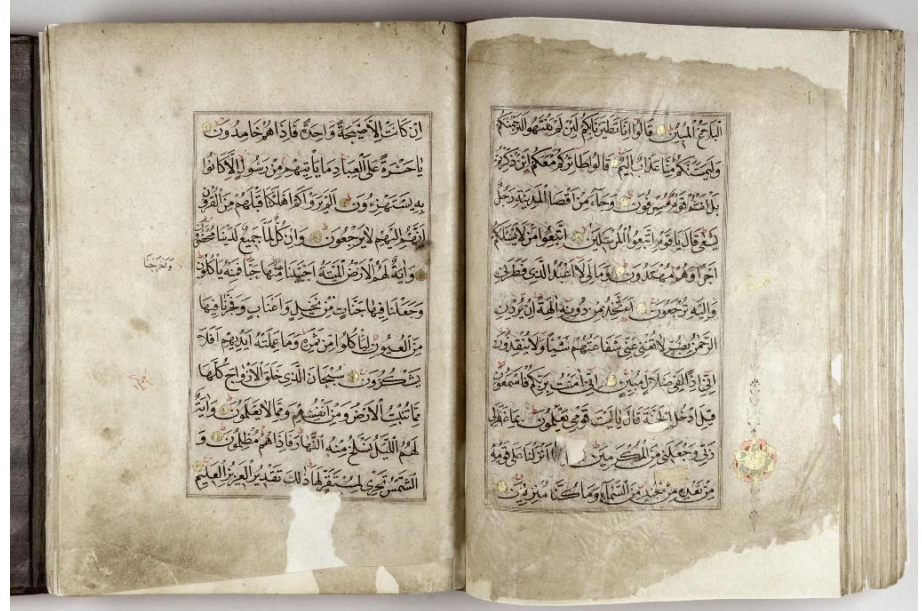 البلاغ المبين قالوا انا تطيرنا بكم لئن لم تنتهوا لنرجمنكم
وليمسنكم منا عذاب اليم قالوا طائركم معكم ائن ذكرتم
بل انتم قوم مسرفون وجاء من اقصا المدينة رجل
يسعى قال يا قوم اتبعوا المرسلين اتبعوا من لا يسئلكم
اجرا وهم مهتدون ومالي لا اعبد الذي فطرني
واليه ترجعون ءاتخذ من دونه الهة ان يردن
الرحمن بضر لا تغن عني شفاعتهم شيئا ولا ينقذون
اني اذا لفي ضلال مبين اني امنت بربكم فاسمعون
قيل ادخل الجنة قال يا ليت قومي يعلمون بما غفر لي
ربي وجعلني من المكرمين انزلنا على قومه
من بعده من جند من السماء وما كنا منزلين
ان كانت الا صيحة واحدة فاذا هم خامدون
يا حسرة على العباد ما ياتيهم من رسول الا كانوا
به يستهزءون الم يروا كم اهلكنا قبلهم من القرون
انهم اليهم لا يرجعون وان كل لما جميع لدينا محضرون
واية لهم الارض الميتة احيينا منها حبا فمنه ياكلون
واخرجنا
وجعلنا فيها جنات من نخيل واعناب وفجرنا فيها
من العيون لياكلوا من ثمره وما عملته ايديهم افلا
يشكرون سبحان الذي خلق الازواج كلها
مما تنبت الارض ومن انفسهم ومما لا يعلمون واية
لهم الليل نسلخ منه النهار فاذا هم مظلمون و
الشمس تجري لمستقر لها ذلك تقدير العزيز العليم